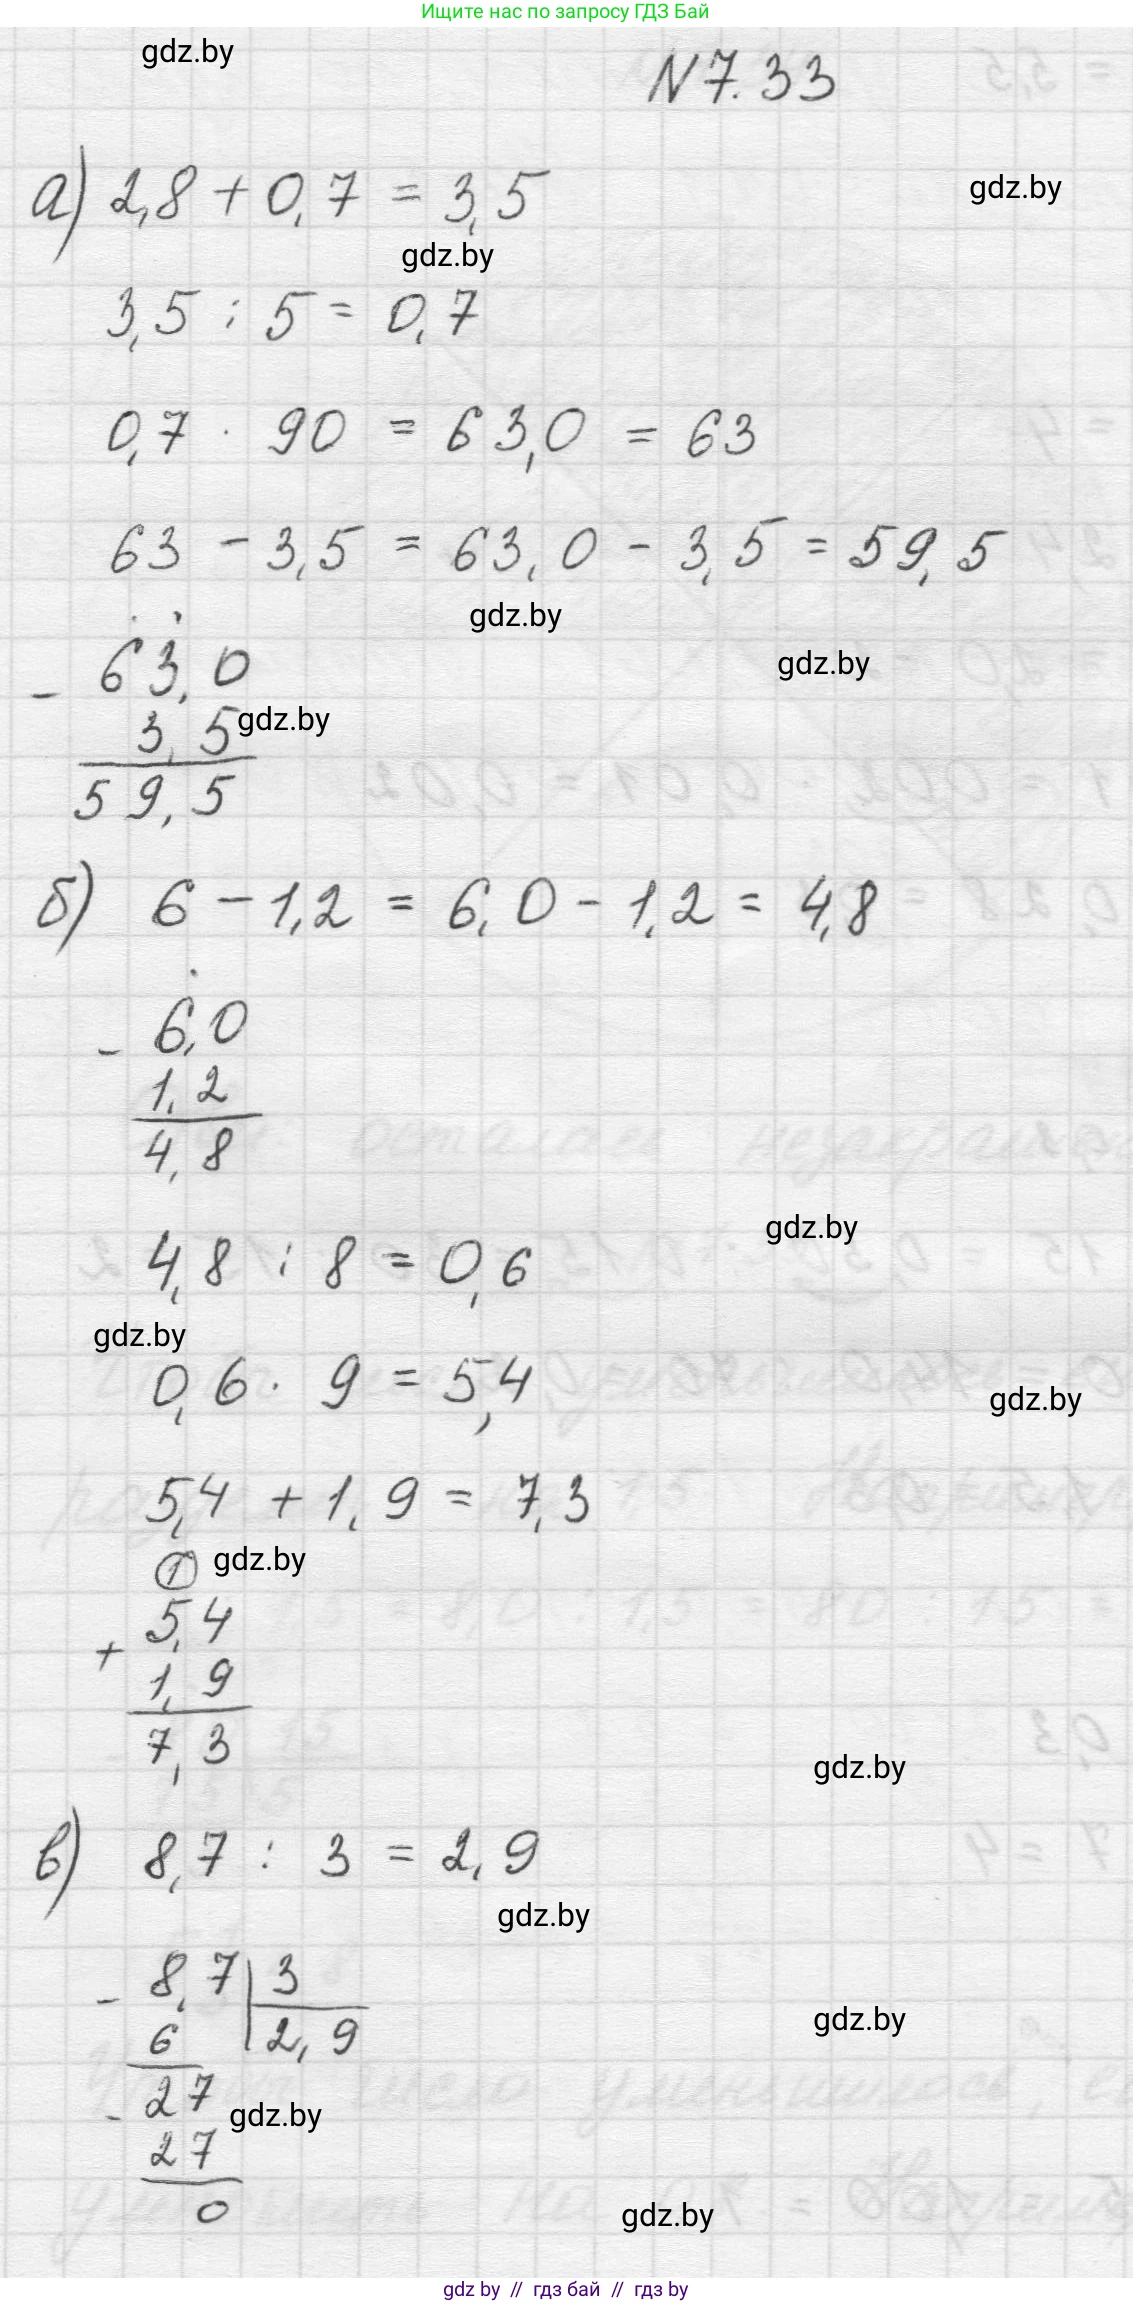 Ищите нас по запросу ГДЗ Бай
gdz.by
N 7.33
а) 2,8 + 0,7 = 3,5
gdz.by
gdz.by
3,5 : 5 = 0,7
0,7 · 90 = 63,0 = 63
63 - 3,5 = 63,0 - 3,5 = 59,5
gdz.by
gdz.by
- 63,0
3,5
gdz.by
59,5
б) 6 - 1,2 = 6,0 - 1,2 = 4,8
- 6,0
1,2
4,8
gdz.by
4,8 : 8 = 0,6
gdz.by
0,6 · 9 = 5,4
gdz.by
5,4 + 1,9 = 7,3
1
gdz.by
+ 5,4
1,9
7,3
gdz.by
в) 8,7 : 3 = 2,9
gdz.by
- 8,7 | 3
6 | 2,9
gdz.by
- 27
gdz.by
27
0
gdz.by
gdz by // гдз бай // гдз by